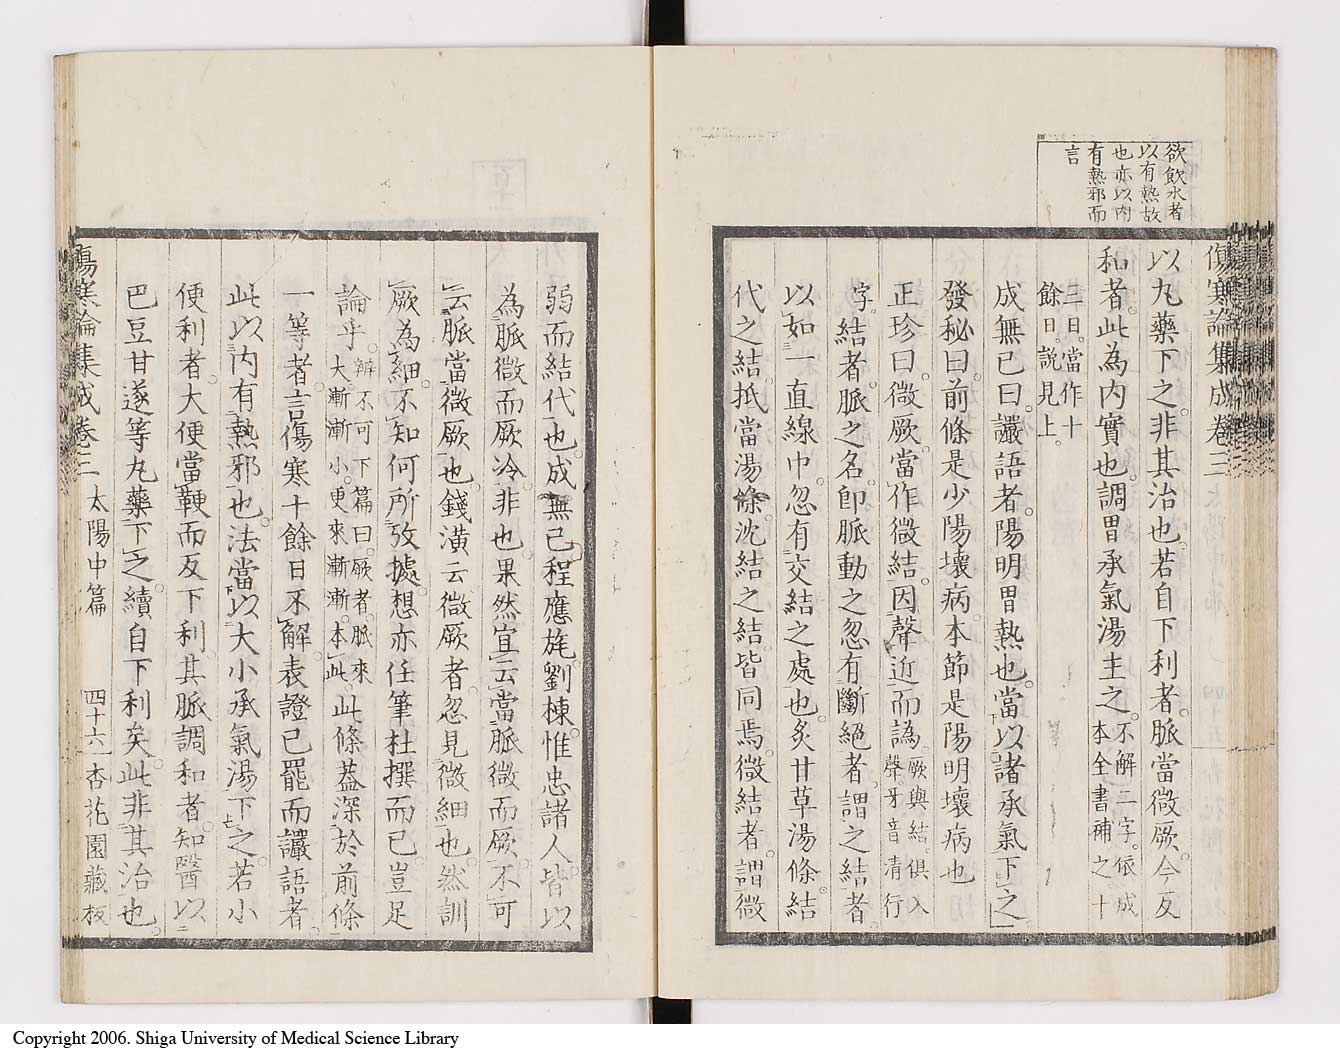 欲飲水者
以有熱故
也亦以内
有熱邪而
言
傷寒論集成卷三
以丸藥下之。非其治也。若自下利者。脈當微厥。今反
和者。此為内實也。調胃承氣湯主之。不解二字。依成本全書補之。十
三日。當作十餘日。說見上。
成無已曰。讝語者。陽明胃熱也。當以諸承氣下之
發秘曰。前條是少陽壞病。本節是陽明壞病也
正珍曰。微厥。當作微結。因聲近而譌。厥與結。俱入聲牙音清行
字。結者。脈之名。卽脈動之忽有斷絕者。謂之結者。
以如一直線中。忽有交結之處也。炙甘草湯條結
代之結。抵當湯條沈結之結。皆同焉。微結者。謂微
弱而結代也。成無已程應旄劉棟惟忠諸人。皆以
為脈微而厥冷。非也。果然。宜云當脈微而厥。不可
云脈當微厥也。錢潢云。微厥者。忽見微細也。然訓
厥為細。不知何所攷據。想亦任筆杜撰而已。豈足
論乎。辨不可下篇曰。厥者。脈來大。漸漸小。更來漸漸。本此。此條蓋深於前條
一等者。言傷寒十餘日不解。表證已罷而讝語者。
此以内有熱邪也。法當以大小承氣湯下之。若小
便利者。大便當鞕。而反下利。其脈調和者。知醫以
巴豆甘遂等丸藥下之。續自下利矣。此非其治也。
傷寒論集成卷三 太陽中篇 四十六 杏花園藏板
Copyright 2006. Shiga University of Medical Science Library